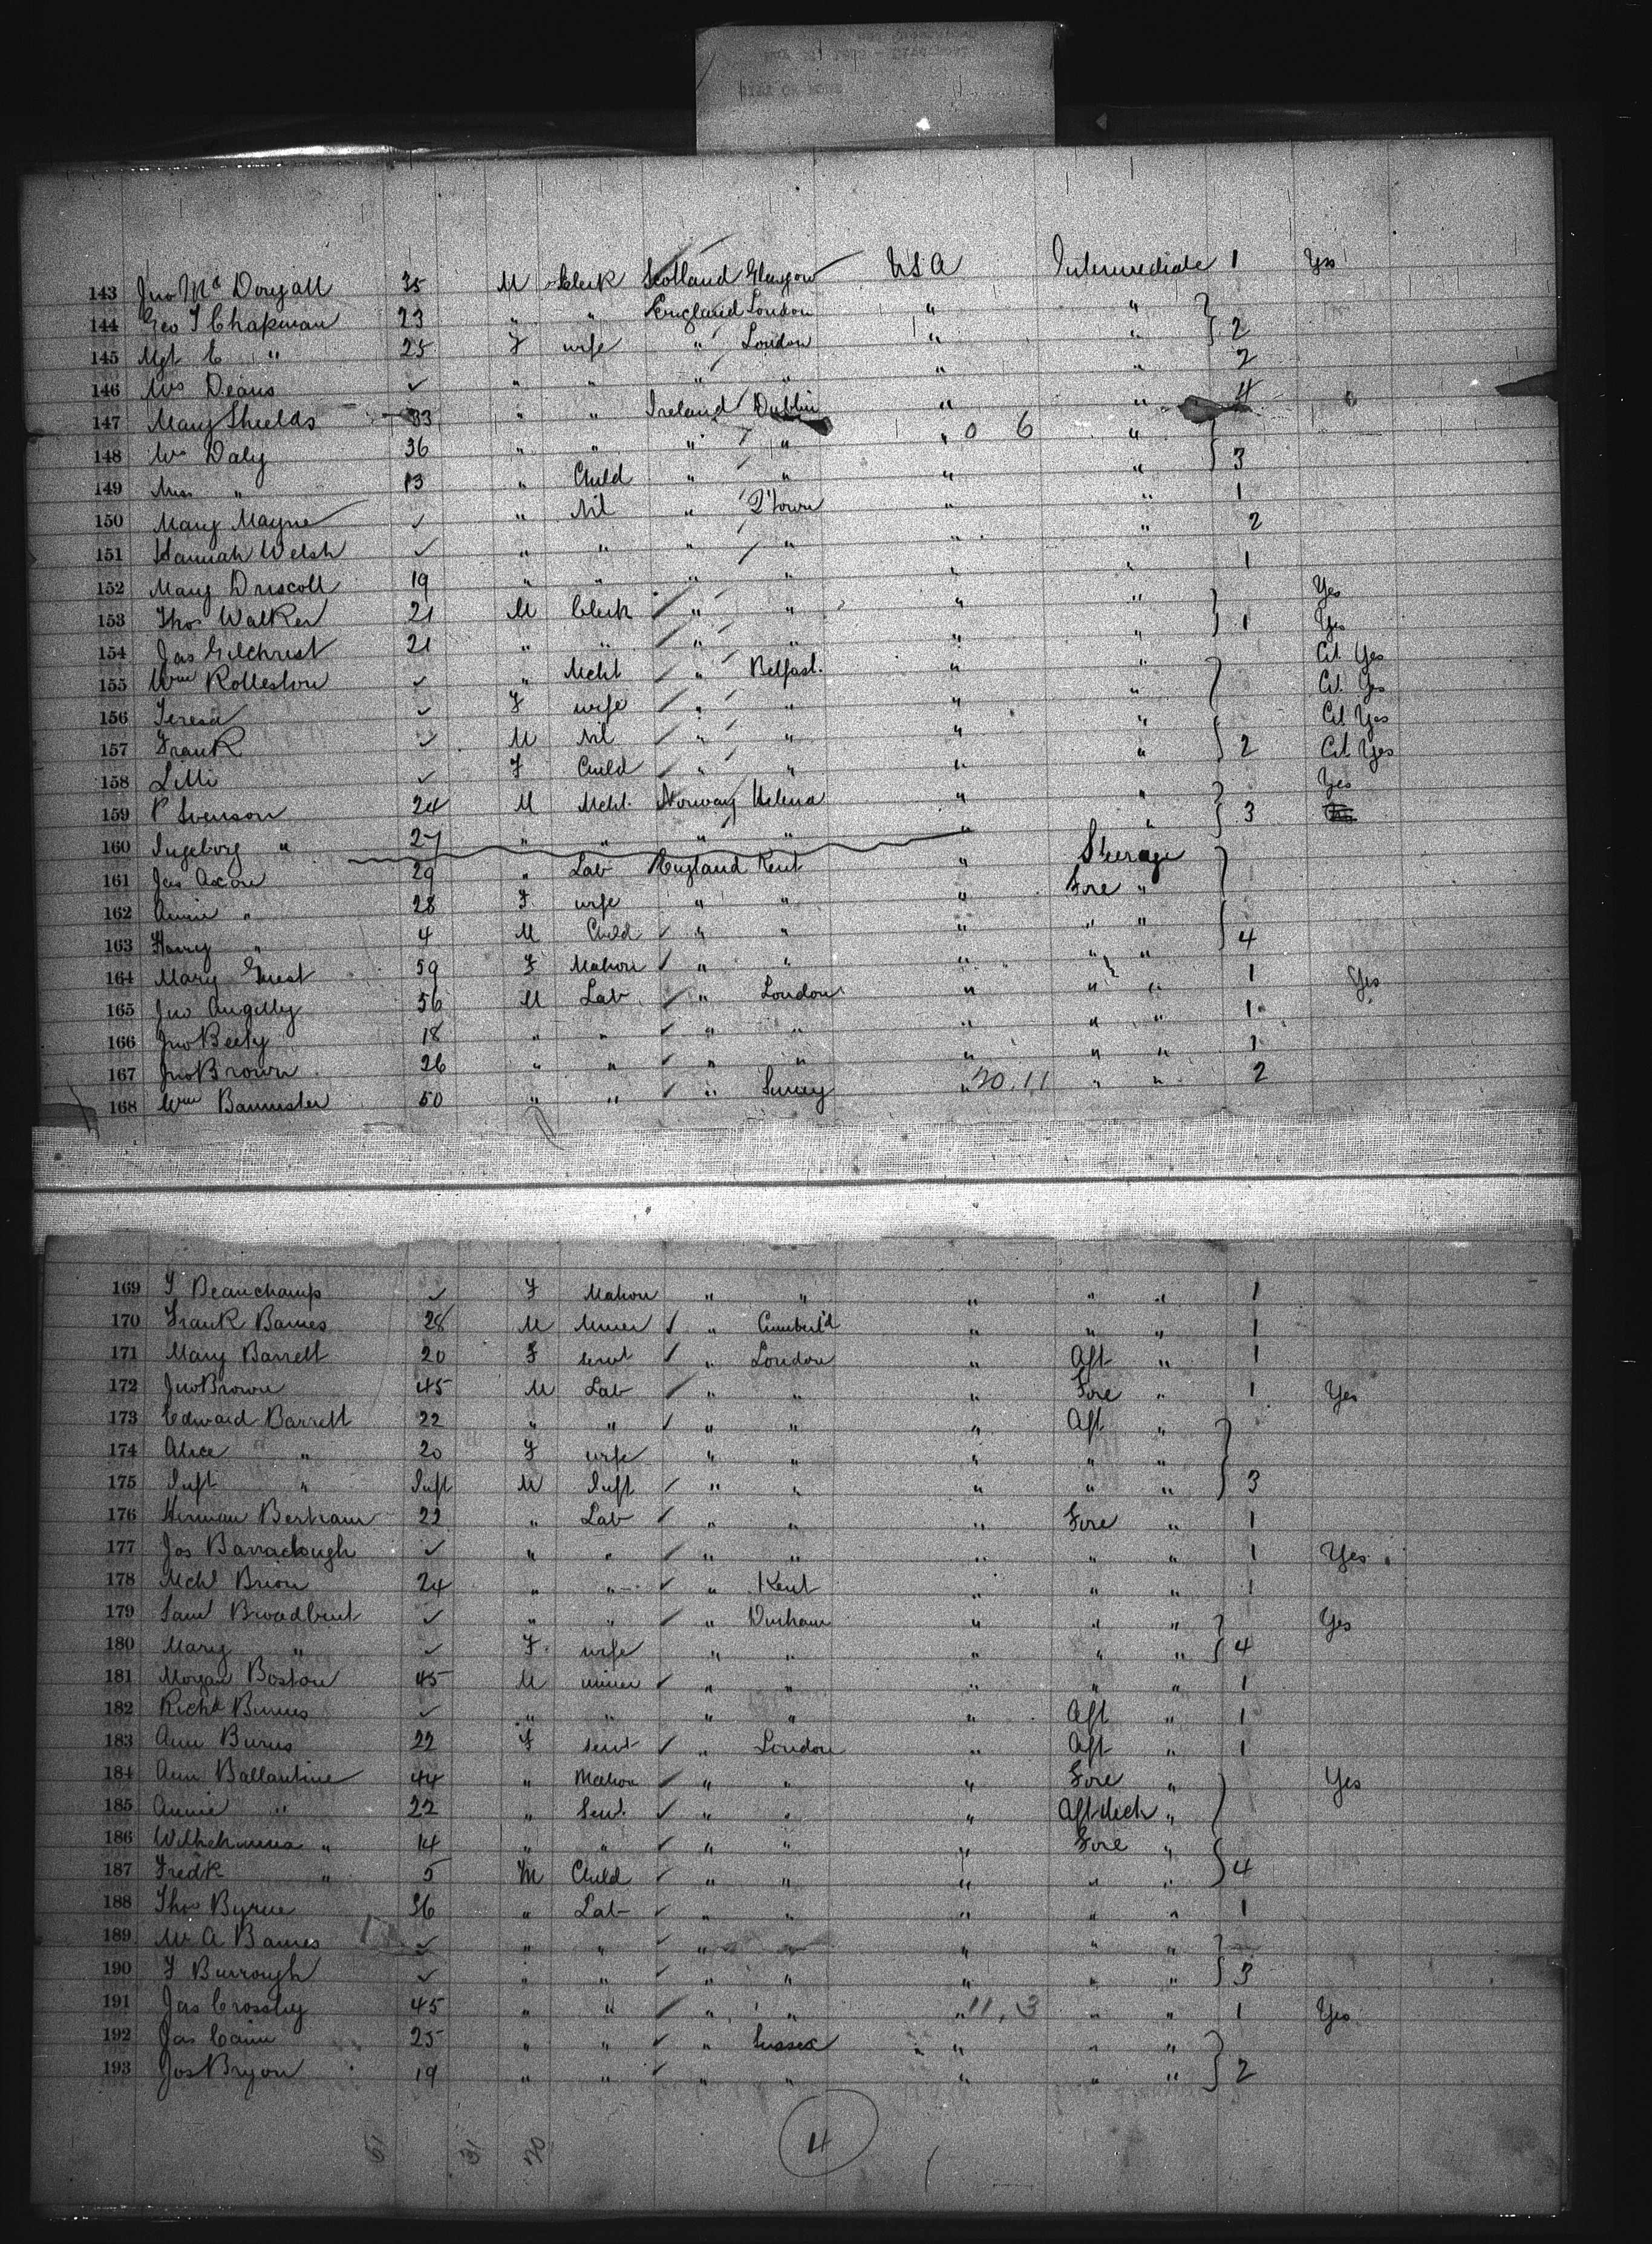 143 Jno McDougall 35 M Clerk Scotland Glasgow USA Intermediate 1 Yes
144 Geo T Chapman 23 " " England London " "
145 Mgt C " 25 F wife " London " " 2
146 Mrs Deans ✓ " " " " " " 2
147 Mary Shields 33 " " Ireland Dublin " " 4
148 Mrs Daly 36 " " " " " 0 6 "
149 Miss " 13 " Child " " " " 3
150 Mary Mayne ✓ " Nil " Q'town " " 1
151 Hannah Welsh ✓ " " " " " " 2
152 Mary Driscoll 19 " " " " " " 1
153 Thos Walker 21 M Clerk " " " " Yes
154 Jas Gilchrist 21 " " " " " " 1 Yes
155 Wm Rolleston ✓ " Mcht " Belfast. " " Cit Yes
156 Teresa ✓ F wife " " " " Cit. Yes
157 Frank ✓ M Nil " " " " Cit Yes
158 Lilli ✓ F Child " " " " 2 Cit Yes
159 P Svenson 24 M Mcht. Norway Helena " " Yes
160 Ingeborg " 27 " " " " " " 3
161 Jas Axon 29 " Lab England Kent " Steerage
162 Annie " 28 F wife " " " Fore "
163 Harry " 4 M Child " " " " " 4
164 Mary Guest 59 F Matron " " " " " 1 Yes
165 Jno 56 M Lab " London " " " 1
166 Jno Beety 18 " " " " " " " 1
167 Jno Brown 26 " " " " " " " 2
168 Wm Bannister 50 " " " Surrey " 20.11 " "
169 F Beauchamp ✓ F Matron " " " " " 1
170 Frank Barnes 28 M Miner " Cumberl'd " " " 1
171 Mary Barrett 20 F Servt " London " Aft " 1
172 Jno Brown 45 M Lab " " " Fore " 1 Yes
173 Edward Barrett 22 " " " " " Aft "
174 Alice " 20 F wife " " " " "
175 Inft " Inft M Inft " " " " " 3
176 Herman Bertram 22 " Lab " " " Fore " 1
177 Jos Barraclough ✓ " " " " " " " 1 Yes
178 Mchl Brion 24 " " " Kent " " " 1
179 Saml Broadbent ✓ " " " Durham " " " Yes
180 Mary " ✓ F wife " " " " " 4
181 Morgan Boston 45 M miner " " " " " 1
182 Richd ✓ " " " " " Aft " 1
183 Ann Burns 22 F Servt " London " Aft " 1
184 Ann Ballantine 44 " Matron " " " Fore " Yes
185 Annie " 22 " Servt. " " " Aft deck "
186 Wilhelmina " 14 " " " " " Fore "
187 Fredk " 5 M Child " " " " " 4
188 Thos Byrne 36 " Lab " " " " " 1
189 Mr A Barnes ✓ " " " " " " "
190 F Burrough ✓ " " " " " " " 3
191 Jas Crossley 45 " " " " " 11.3 " " 1 Yes
192 Jas Cain 25 " " " Sussex " " "
193 Jos Bryon 19 " " " " " " " 2
4